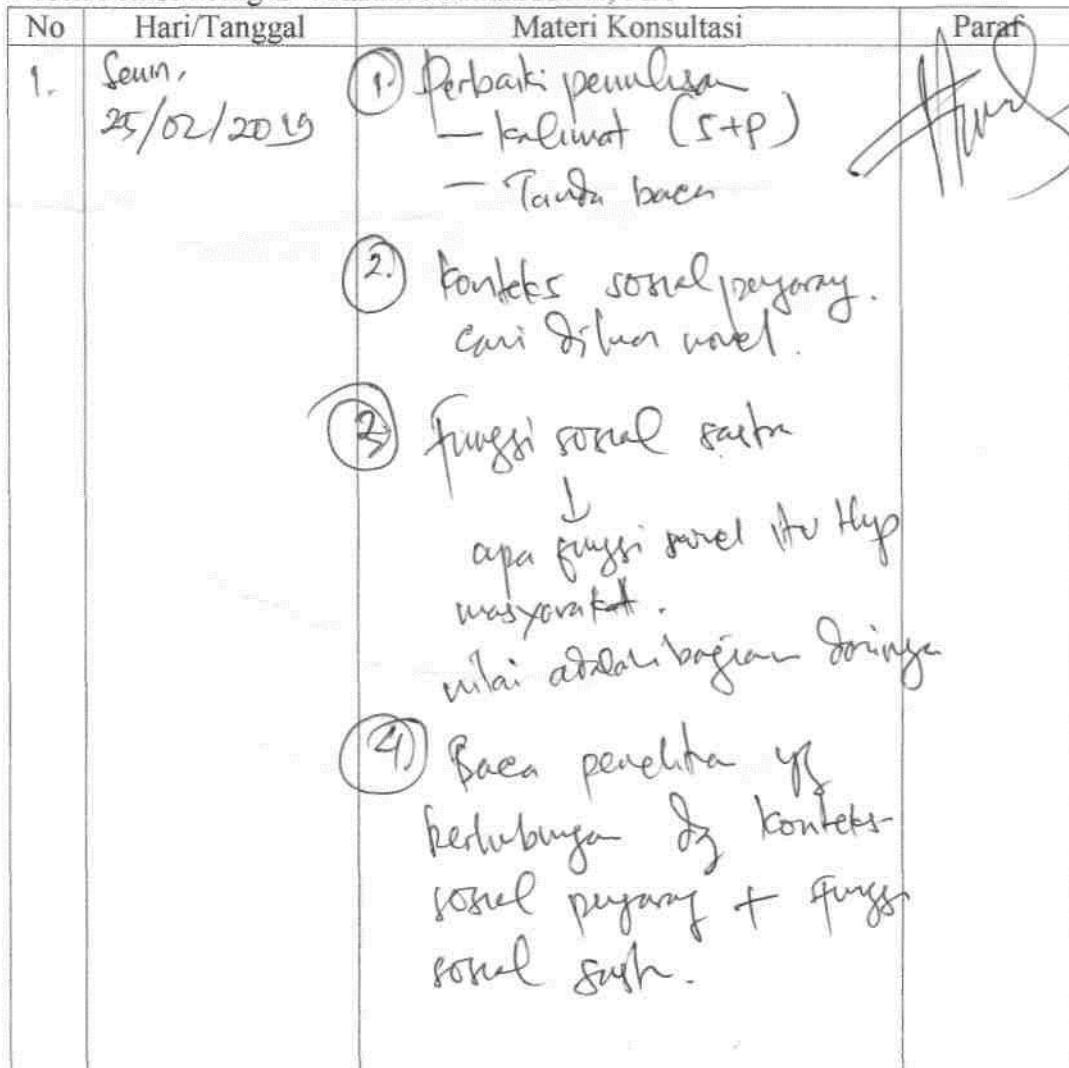 No Hari/Tanggal Materi Konsultasi Paraf
1. Senin,
25/02/2019
1. Perbaiki penulisan
— kalimat (S+P)
— Tanda baca
2. konteks sosial pengarang.
cari diluar novel.
3. fungsi sosial sastra
↓
apa fungsi novel itu thp
masyarakat.
nilai adalah bagian darinya
4. Baca penelitian yg
berhubungan dg konteks
sosial pengarang + fungsi
sosial sastra.